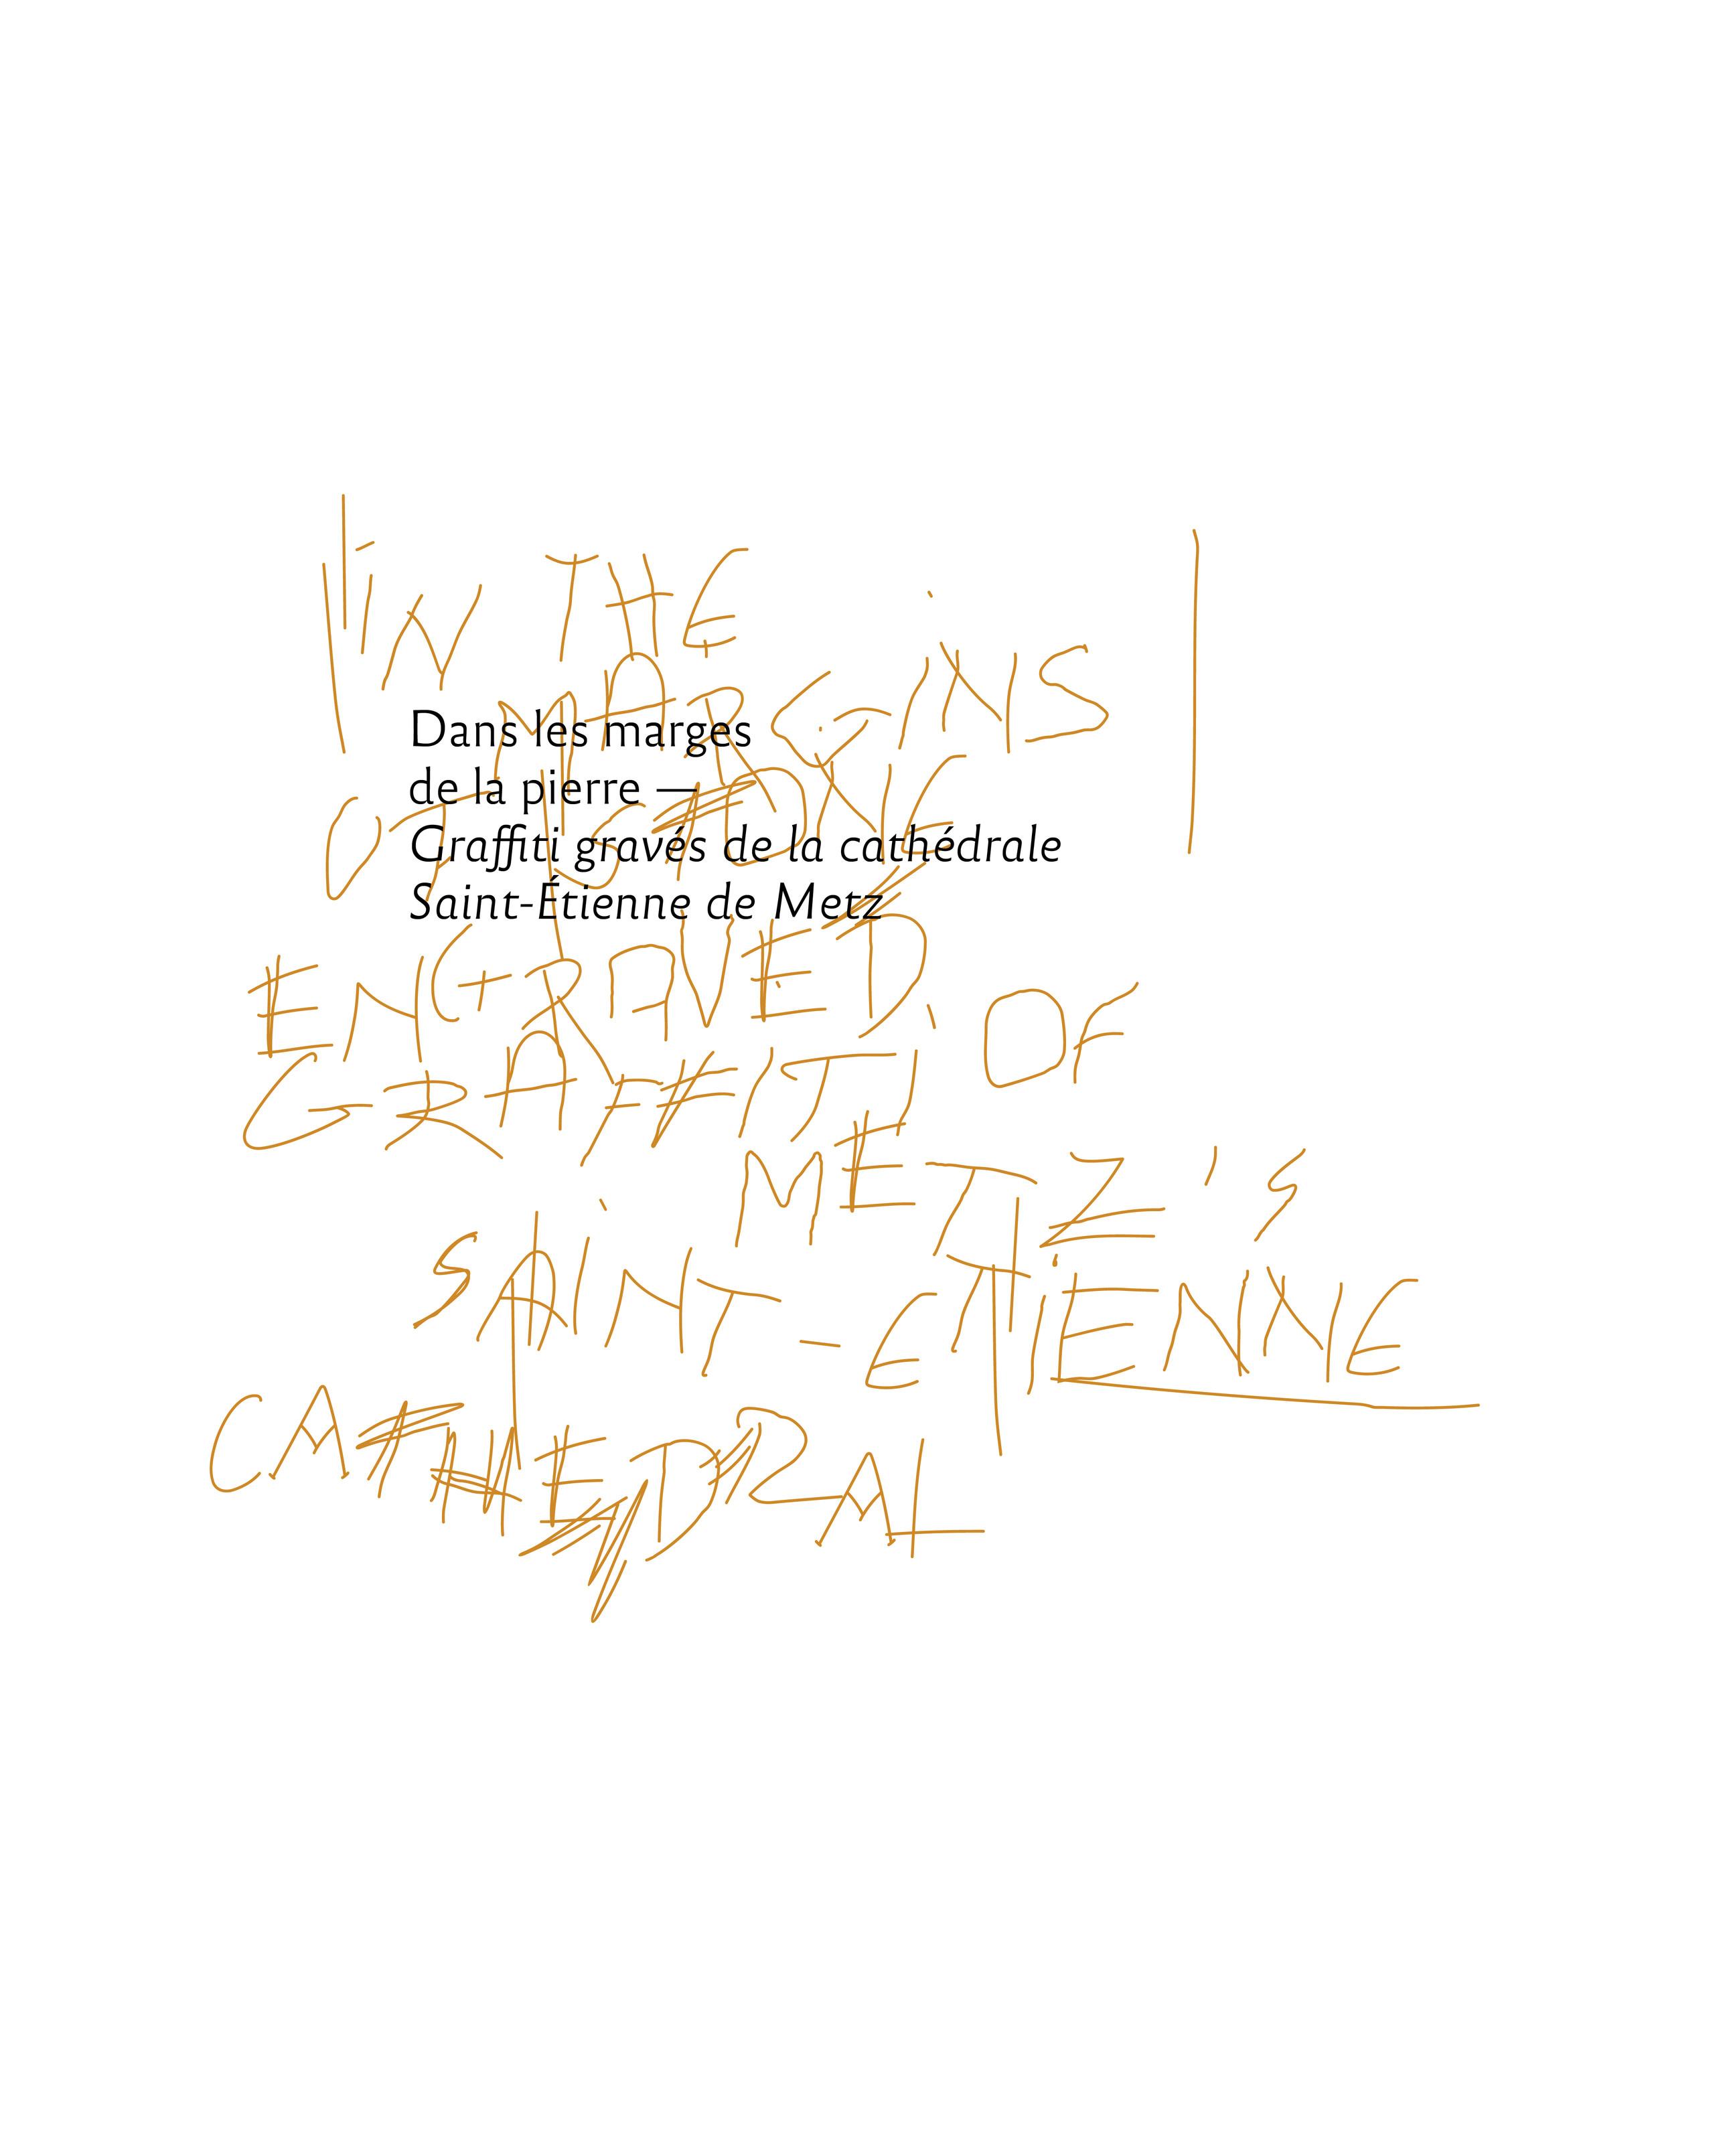 iN THE
MARGiNS
OF STONE
Dans les marges
de la pierre —
Graffiti gravés de la cathédrale
Saint-Étienne de Metz
ENGRAVED
GRAFFITI OF
METZ's
SAiNT-ETiENNE
CATHEDRAL